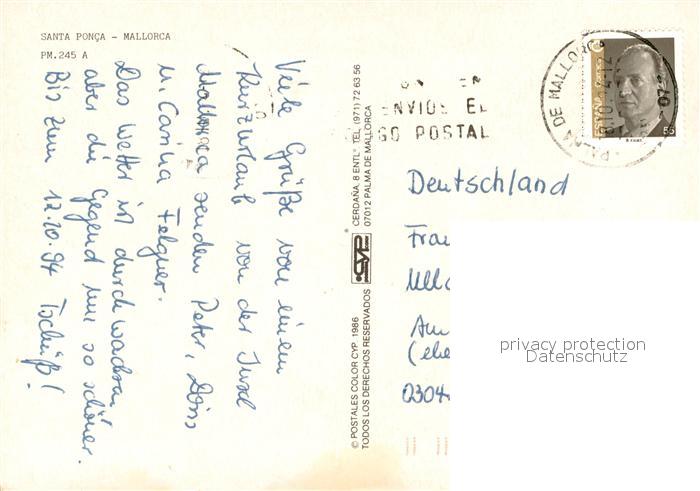 SANTA PONÇA - MALLORCA
PM. 245 A
Viele Grüße von einem
Kurzurlaub von der Insel
Mallorca senden Peter, Doris
u. Carina Felgner.
Das Wetter ist durchwachsen,
aber die Gegend um so schöner.
Bis zum 12.10.94 Tschüß!
© POSTALES COLOR CYP, 1986
TODOS LOS DERECHOS RESERVADOS
CYP
CERDAÑA, 8 ENTLº TEL. (971) 72 63 56
07012 PALMA DE MALLORCA
ENVIOS EL
GO POSTAL
PALMA DE MALLORCA
ESPAÑA
55
Deutschland
Frau
Am
0304
privacy protection
Datenschutz